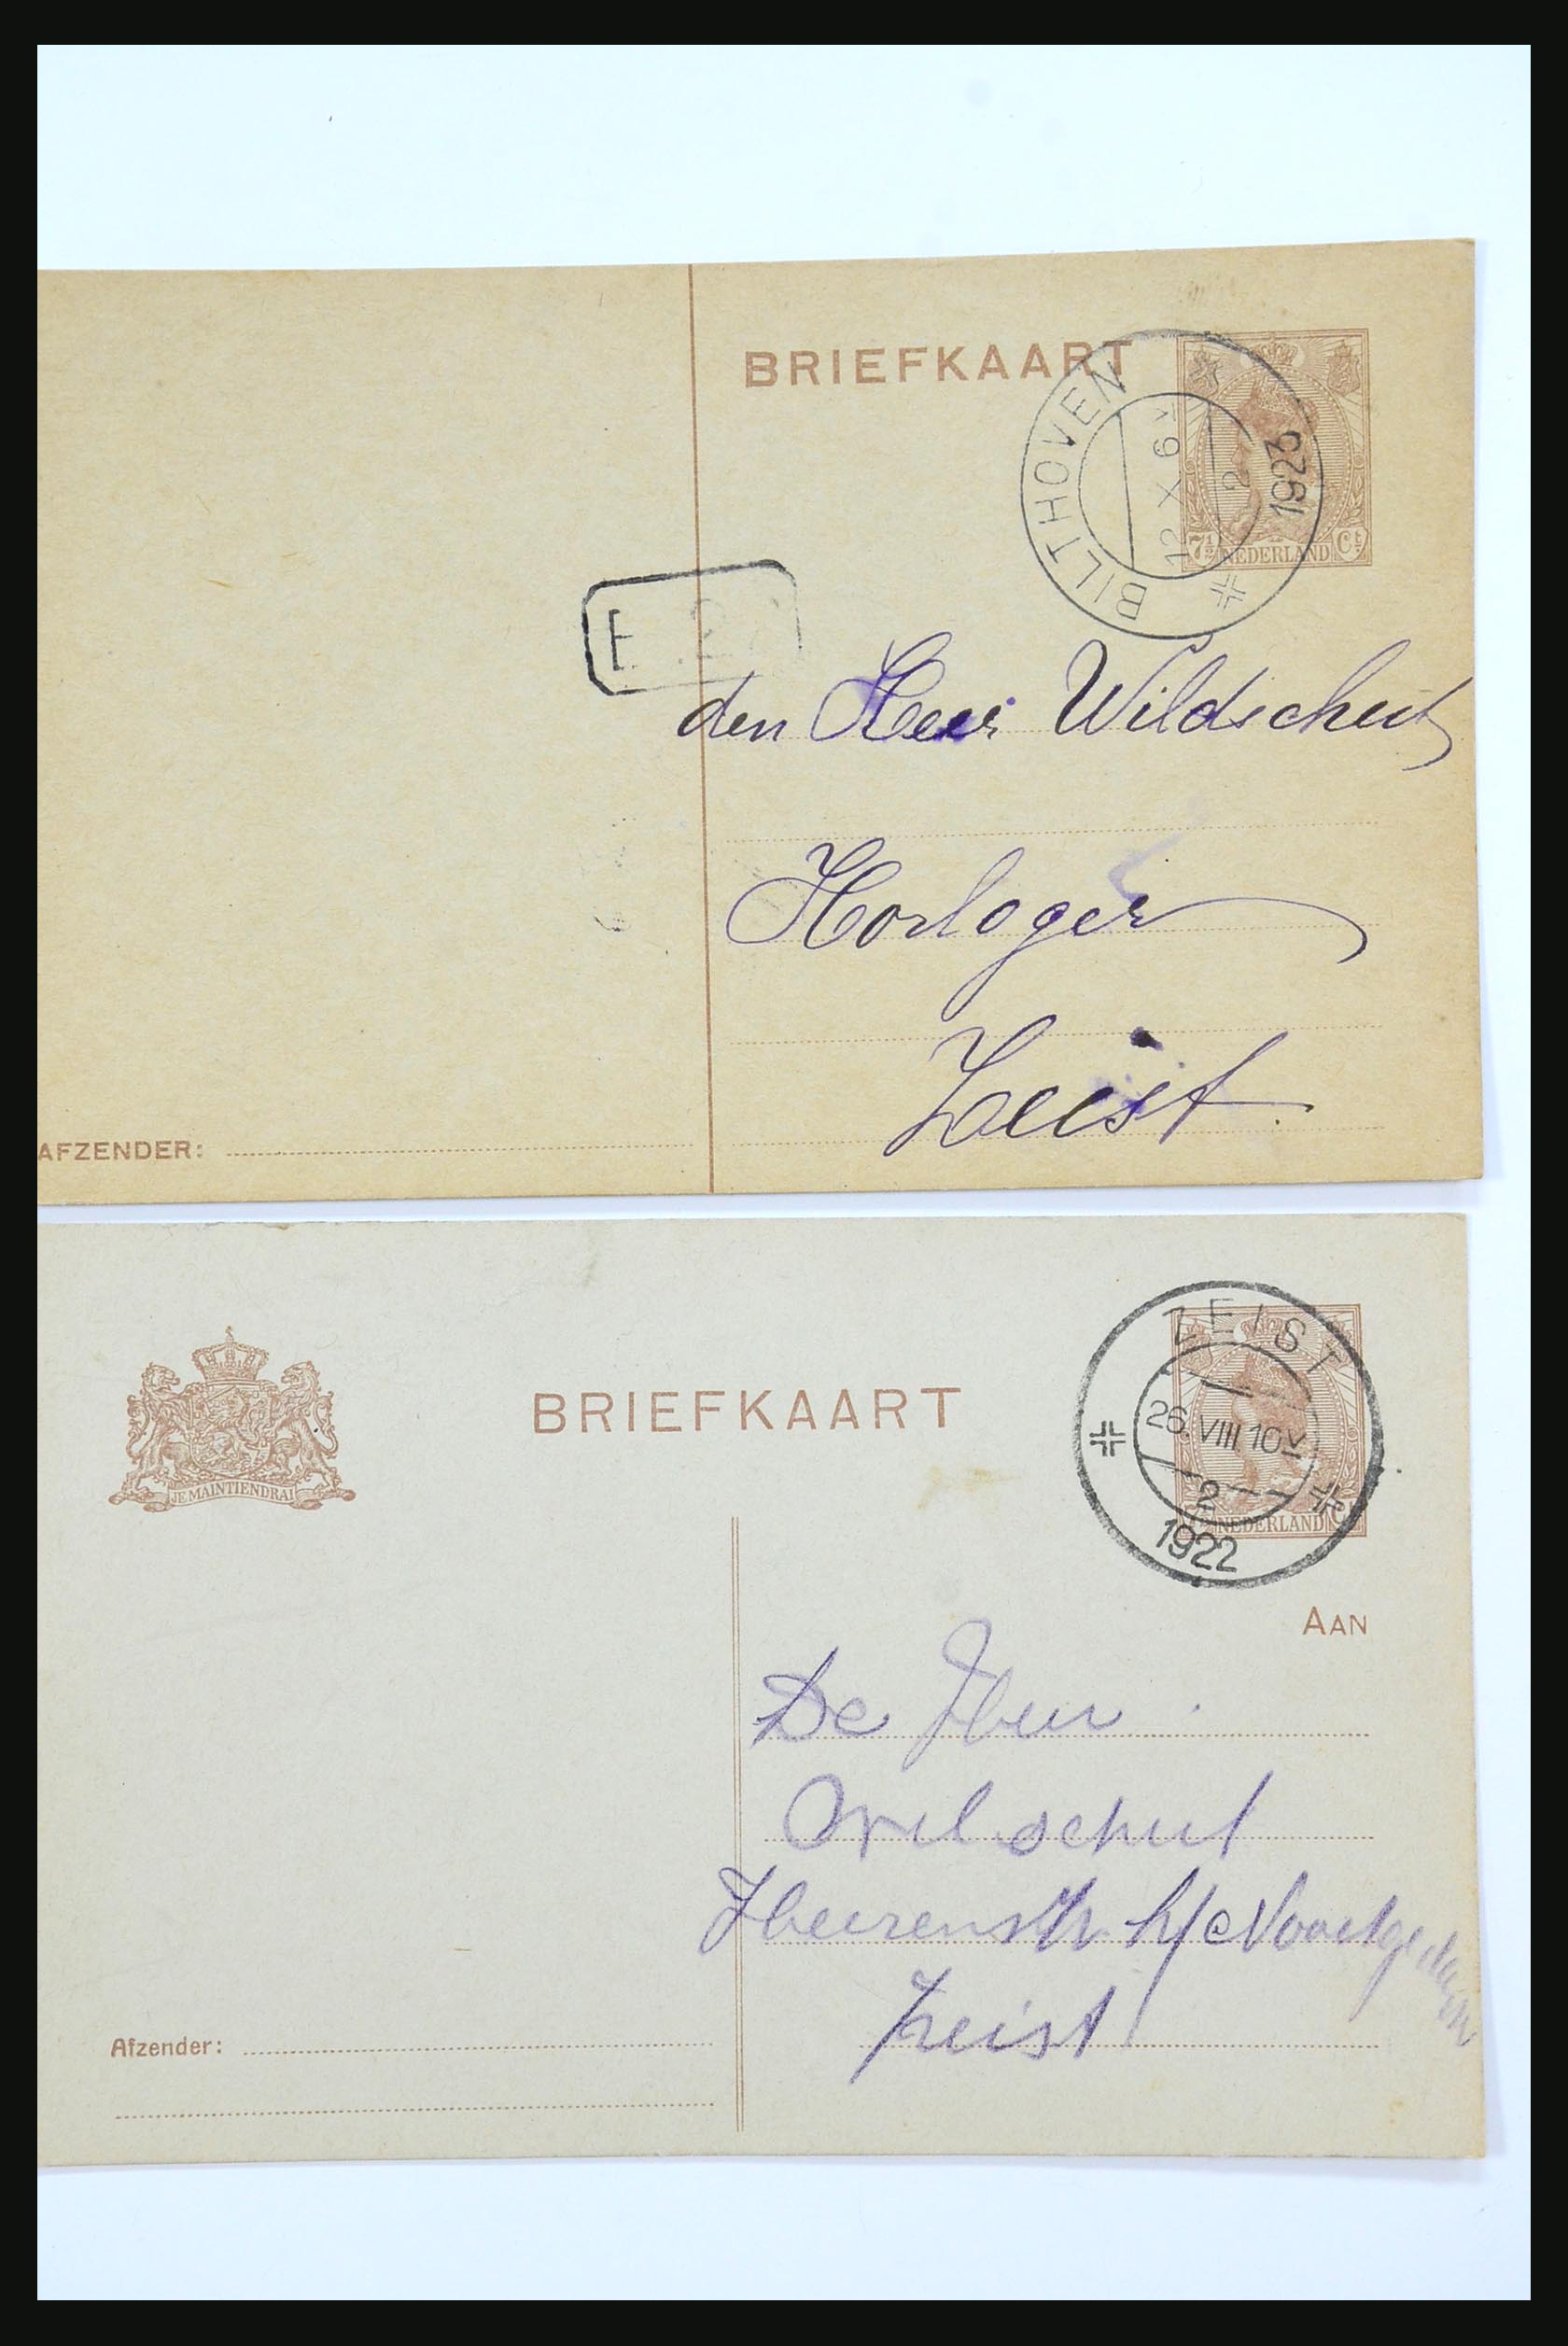 BRIEFKAART
BILTHOVEN
12 X 6V
2
1922
7½ NEDERLAND Ct
E 2
den Heer Wildschut
Horloger
Zeist
AFZENDER:
JE MAINTIENDRAI
BRIEFKAART
ZEIST
26.VIII 10V
2
1922
NEDERLAND
AAN
De Heer
Heerenstr. h/e
Zeist
Afzender: